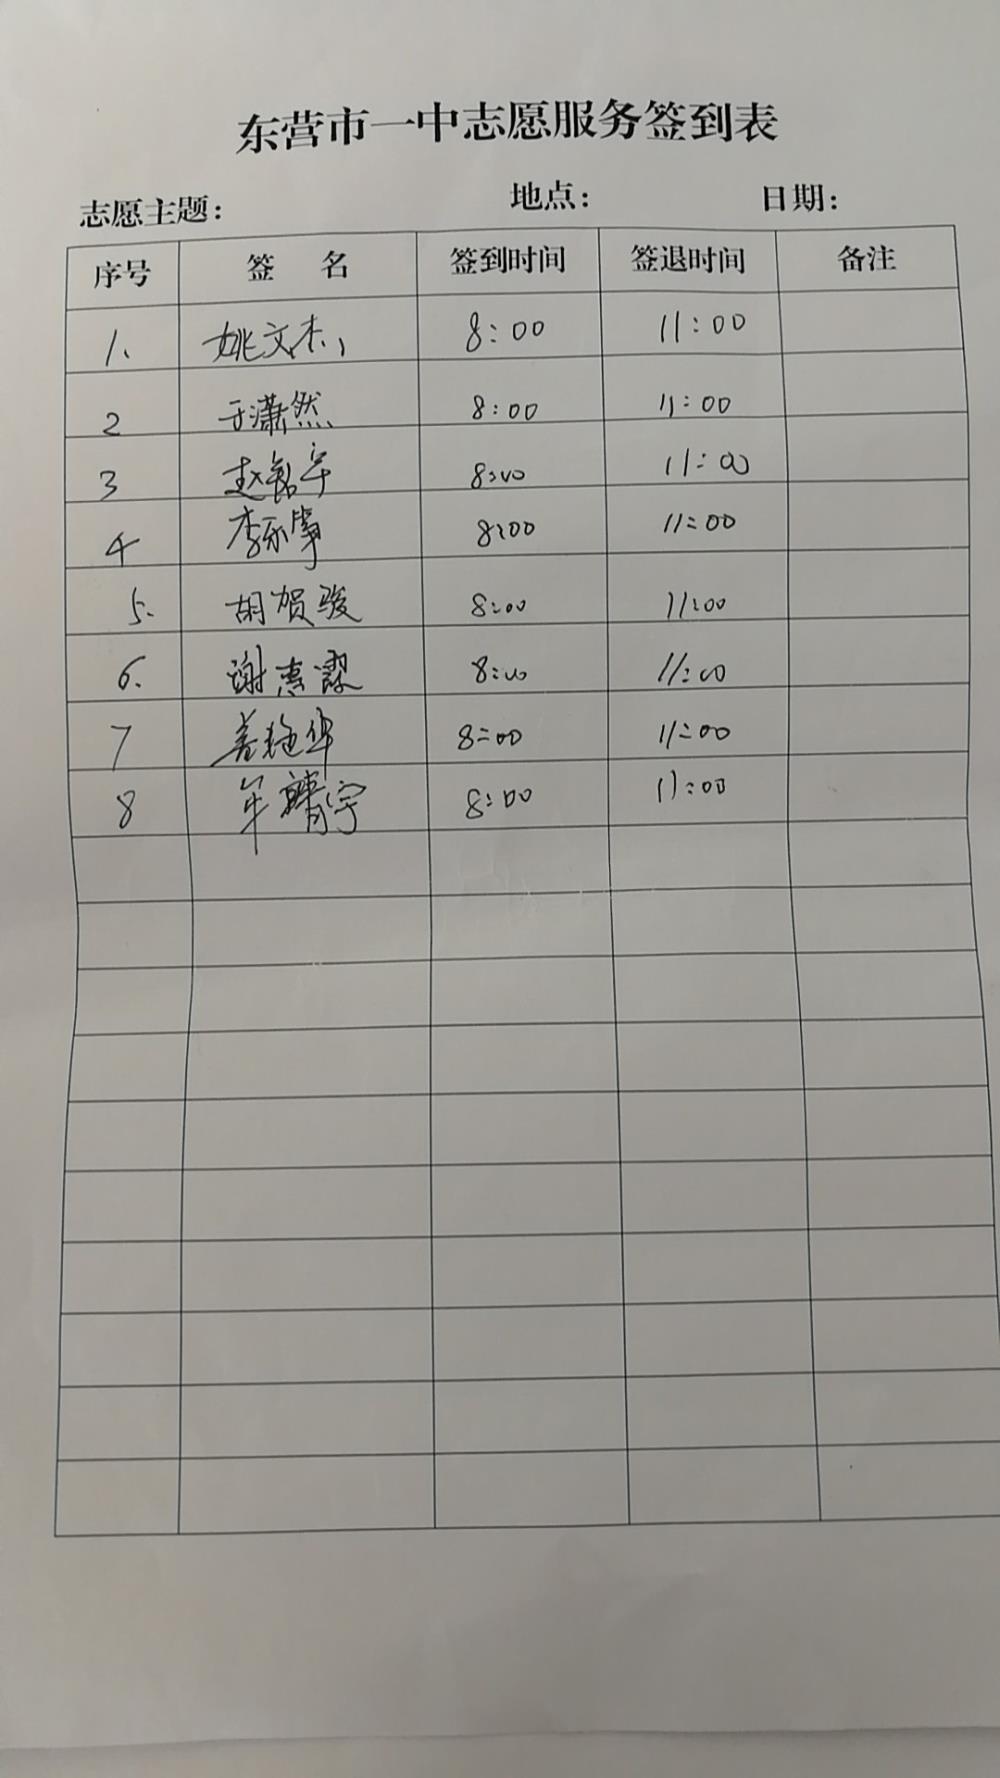 东营市一中志愿服务签到表
志愿主题： 地点： 日期：
序号 签 名 签到时间 签退时间 备注
1. 姚文杰 8:00 11:00
2 于潇然 8:00 11:00
3 赵宇 8:00 11:00
4 李 8:00 11:00
5. 胡贺骏 8:00 11:00
6. 谢惠 8:00 11:00
7 华 8:00 11:00
8 宇 8:00 11:00